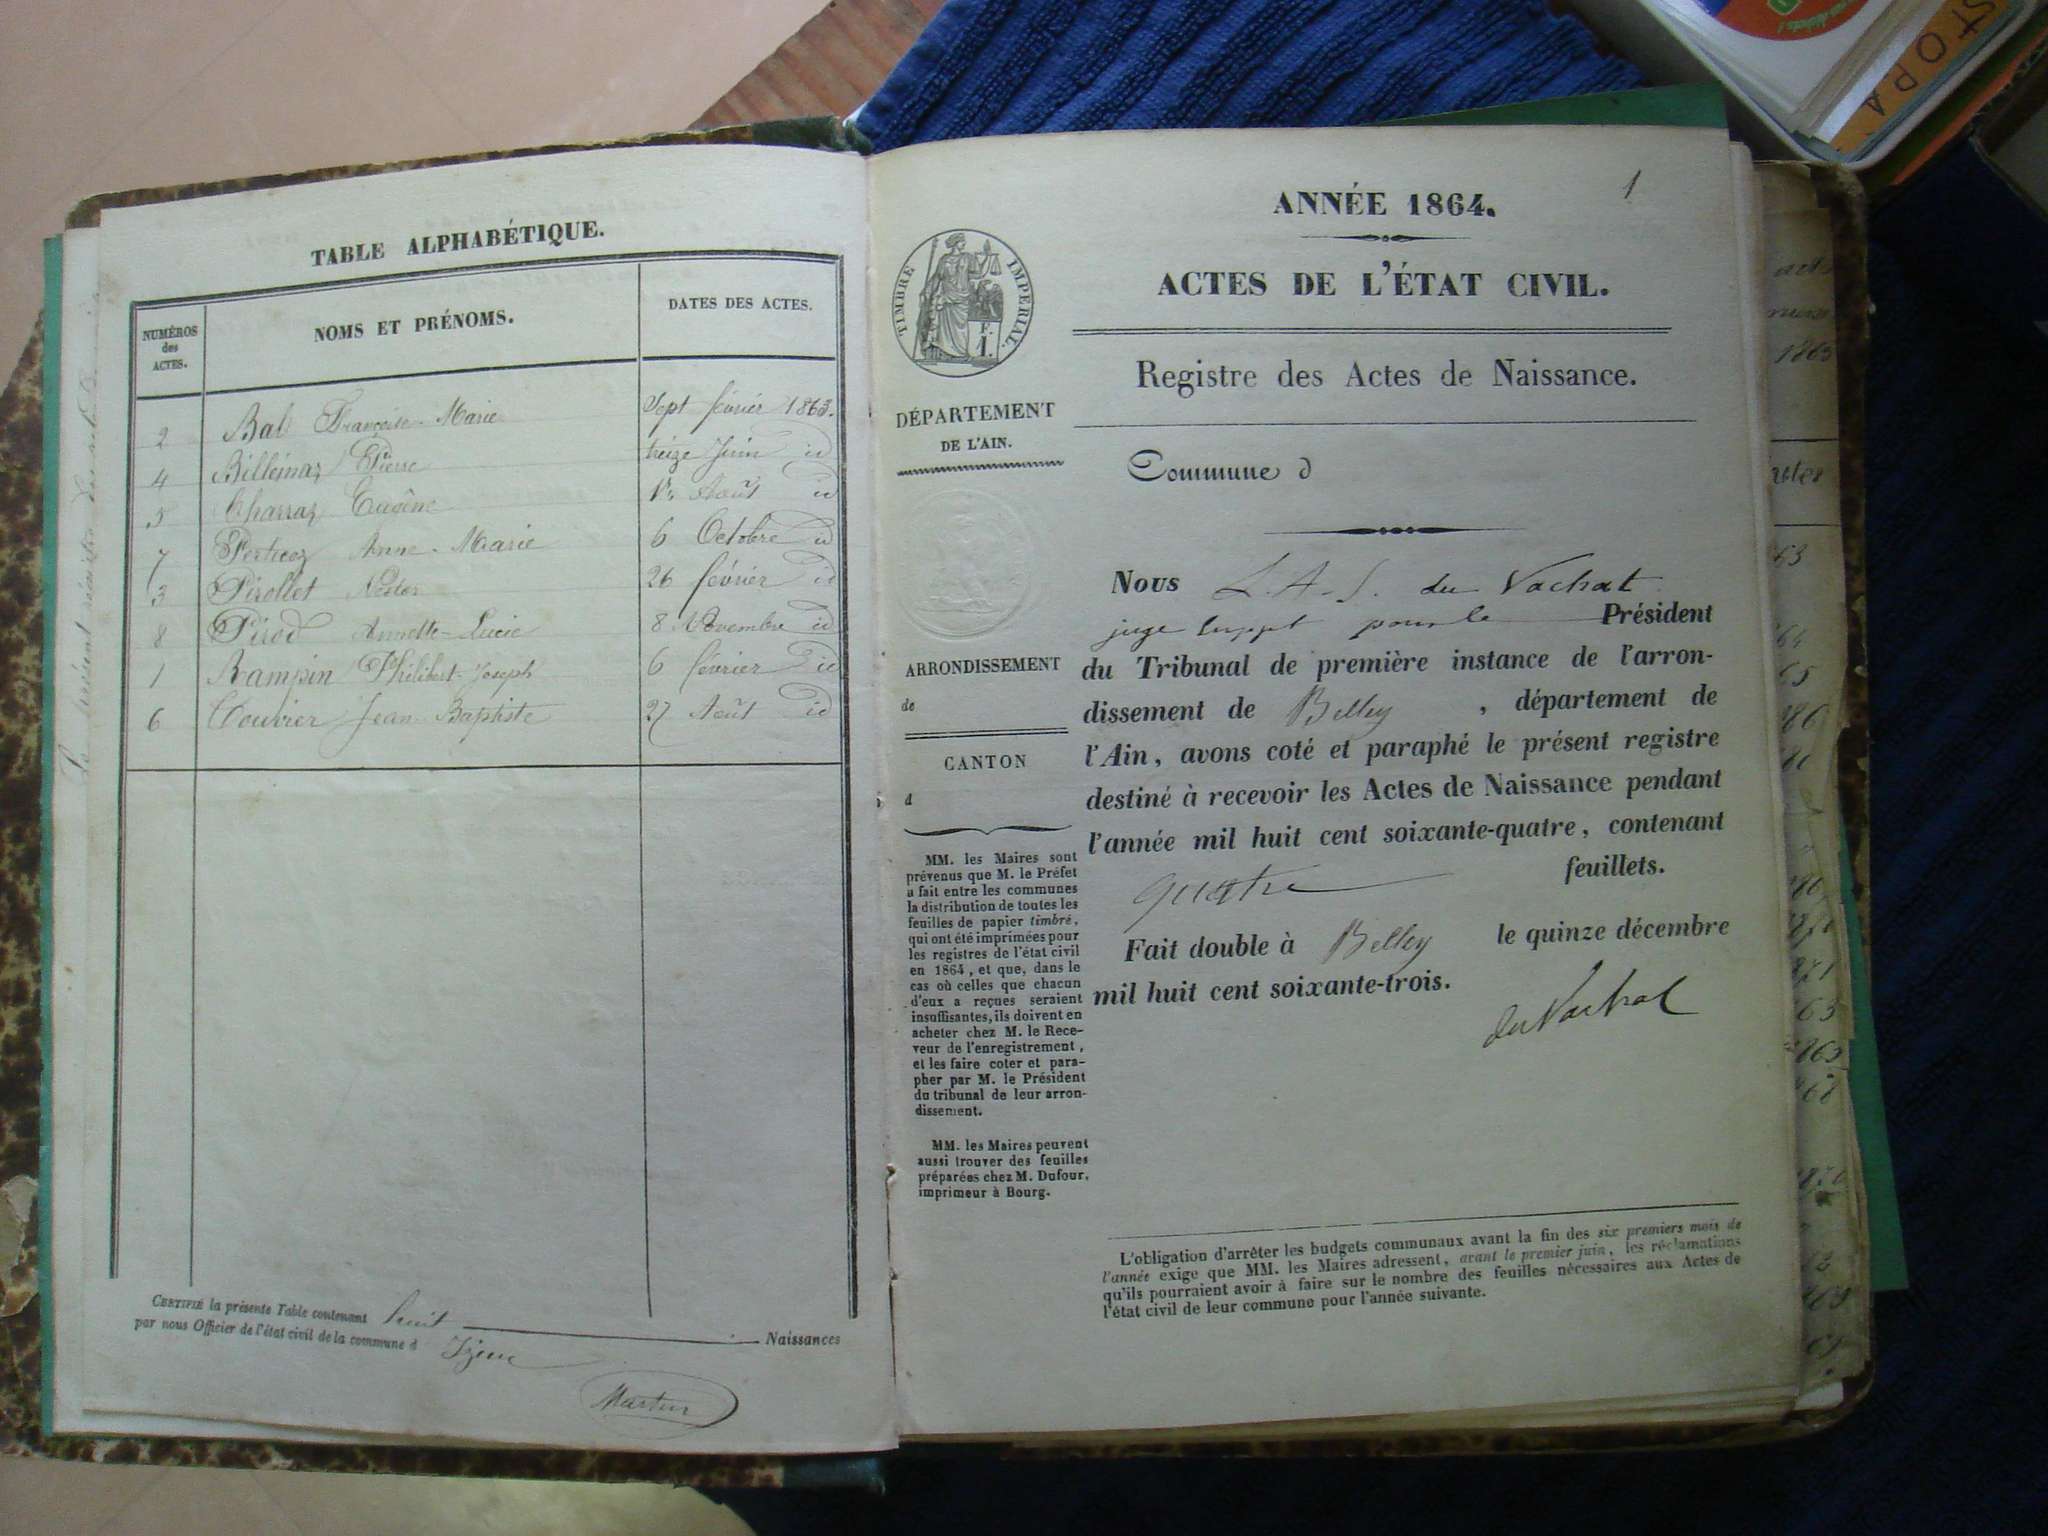 TABLE ALPHABÉTIQUE.
NUMÉROS des ACTES.
NOMS ET PRÉNOMS.
DATES DES ACTES.
2 Bal Françoise-Marie Sept février 1863.
4 Billémaz Pierre treize Juin id
5 Charraz Eugène 1er Août id
7 Perticoz Anne-Marie 6 Octobre id
3 Pirollet Nestor 26 février id
8 Pirod Annette-Lucie 8 Novembre id
1 Rampin Philibert-Joseph 6 février id
6 Touvier Jean-Baptiste 27 Août id
CERTIFIÉ la présente Table contenant huit Naissances
par nous Officier de l'état civil de la commune d Izieu
Martin
1
ANNÉE 1864.
ACTES DE L'ÉTAT CIVIL.
Registre des Actes de Naissance.
TIMBRE IMPERIAL.
E.
I.
DÉPARTEMENT
DE L'AIN.
ARRONDISSEMENT
de
CANTON
d
MM. les Maires sont
prévenus que M. le Préfet
a fait entre les communes
la distribution de toutes les
feuilles de papier timbré,
qui ont été imprimées pour
les registres de l'état civil
en 1864, et que, dans le
cas où celles que chacun
d'eux a reçues seraient
insuffisantes, ils doivent en
acheter chez M. le Rece-
veur de l'enregistrement,
et les faire coter et para-
pher par M. le Président
du tribunal de leur arron-
dissement.
MM. les Maires peuvent
aussi trouver des feuilles
préparées chez M. Dufour,
imprimeur à Bourg.
Commune d
Nous L. A. S. du Vachat
juge suppt pour le Président
du Tribunal de première instance de l'arron-
dissement de Belley, département de
l'Ain, avons coté et paraphé le présent registre
destiné à recevoir les Actes de Naissance pendant
l'année mil huit cent soixante-quatre, contenant
quatre feuillets.
Fait double à Belley le quinze décembre
mil huit cent soixante-trois.
du Vachat
L'obligation d'arrêter les budgets communaux avant la fin des six premiers mois de
l'année exige que MM. les Maires adressent, avant le premier juin, les réclamations
qu'ils pourraient avoir à faire sur le nombre des feuilles nécessaires aux Actes de
l'état civil de leur commune pour l'année suivante.